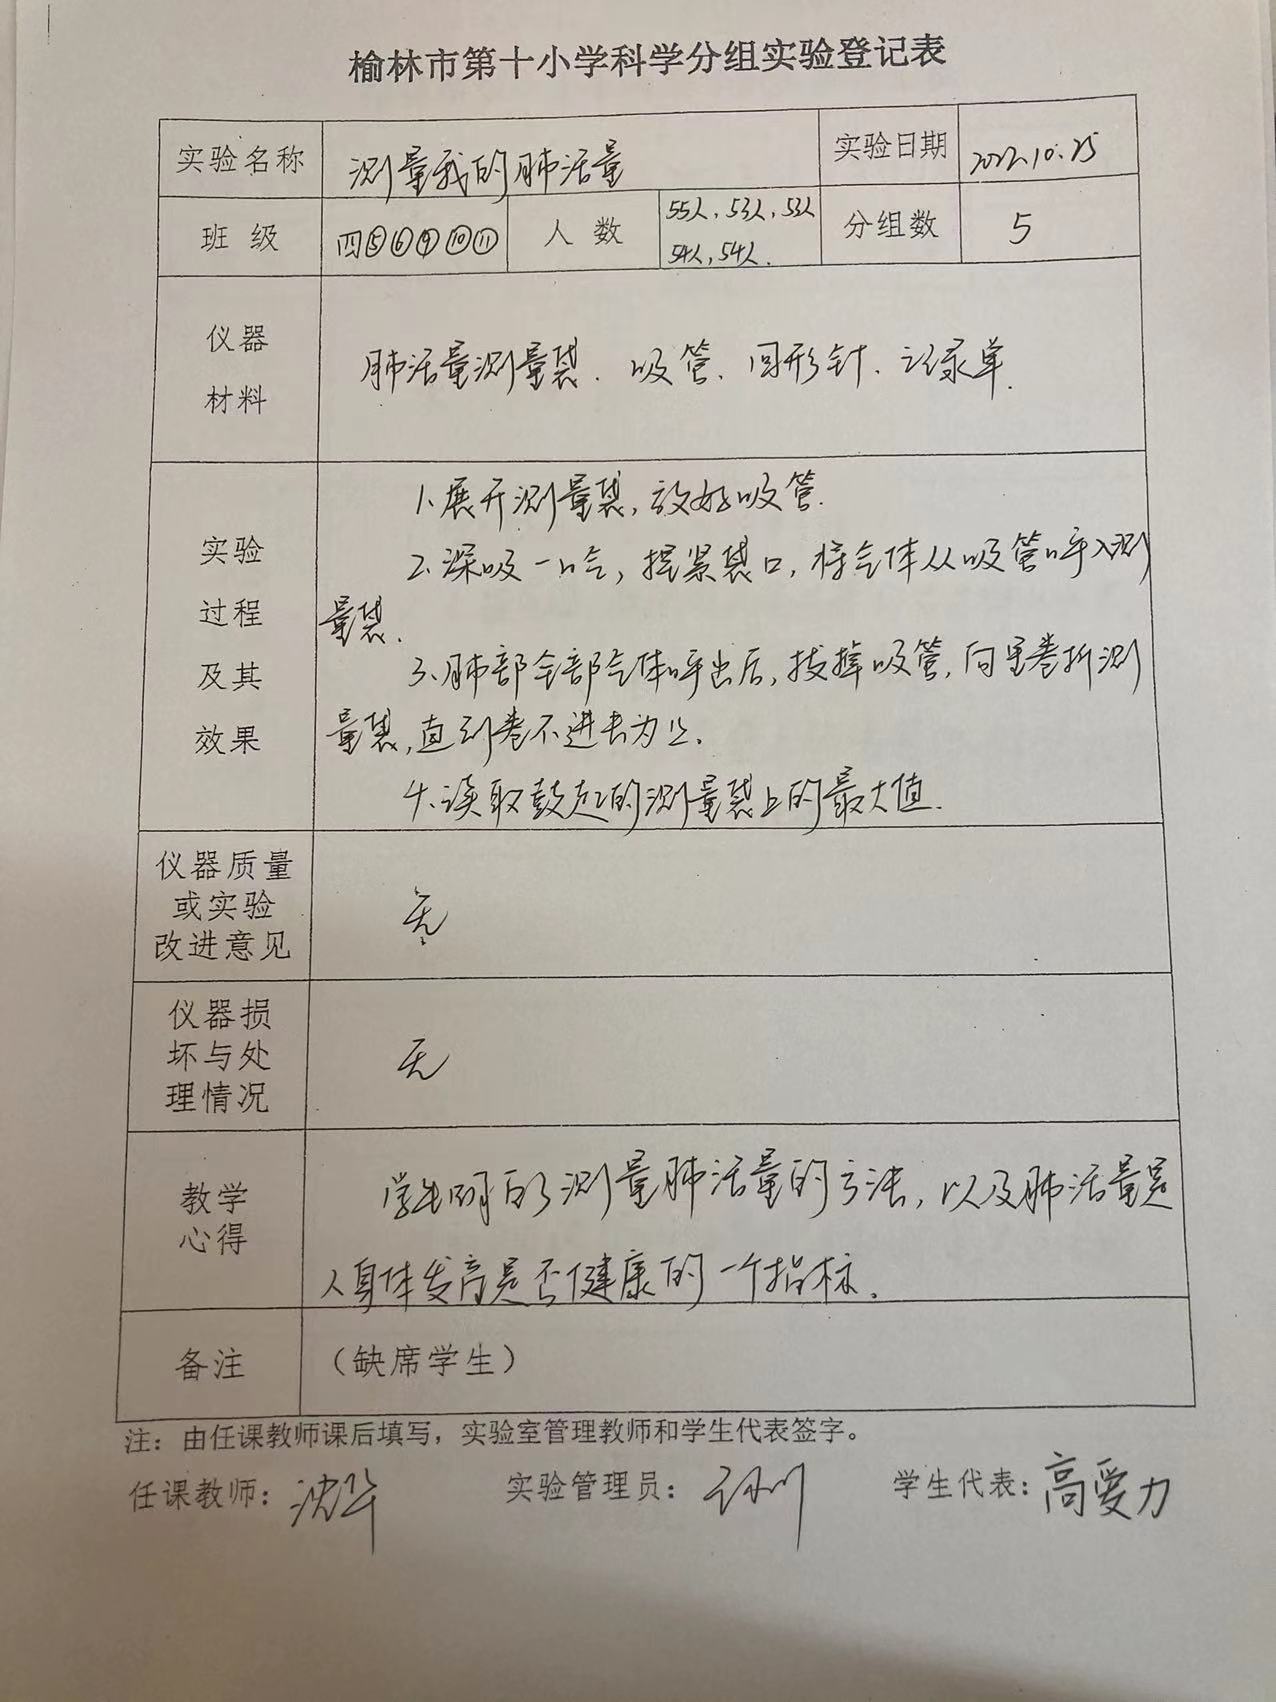 榆林市第十小学科学分组实验登记表
实验名称 测量我的肺活量 实验日期 2022.10.25
班级 四⑤⑥⑨⑩⑪ 人数 55人,53人,53人 分组数 5
54人,54人.
仪器
材料
肺活量测量袋、吸管、回形针、记录单.
实验
过程
及其
效果
1.展开测量袋,放好吸管.
2.深吸一口气,捏紧袋口,将气体从吸管呼入测
量袋.
3、肺部全部气体呼出后,拔掉吸管,向里卷折测
量袋,直到卷不进去为止.
4、读取鼓起的测量袋上的最大值.
仪器质量
或实验
改进意见
无
仪器损
坏与处
理情况
无
教学
心得
学生明白了测量肺活量的方法,以及肺活量是
人身体发育是否健康的一个指标.
备注 (缺席学生)
注:由任课教师课后填写,实验室管理教师和学生代表签字。
任课教师: 实验管理员: 学生代表:高爱力